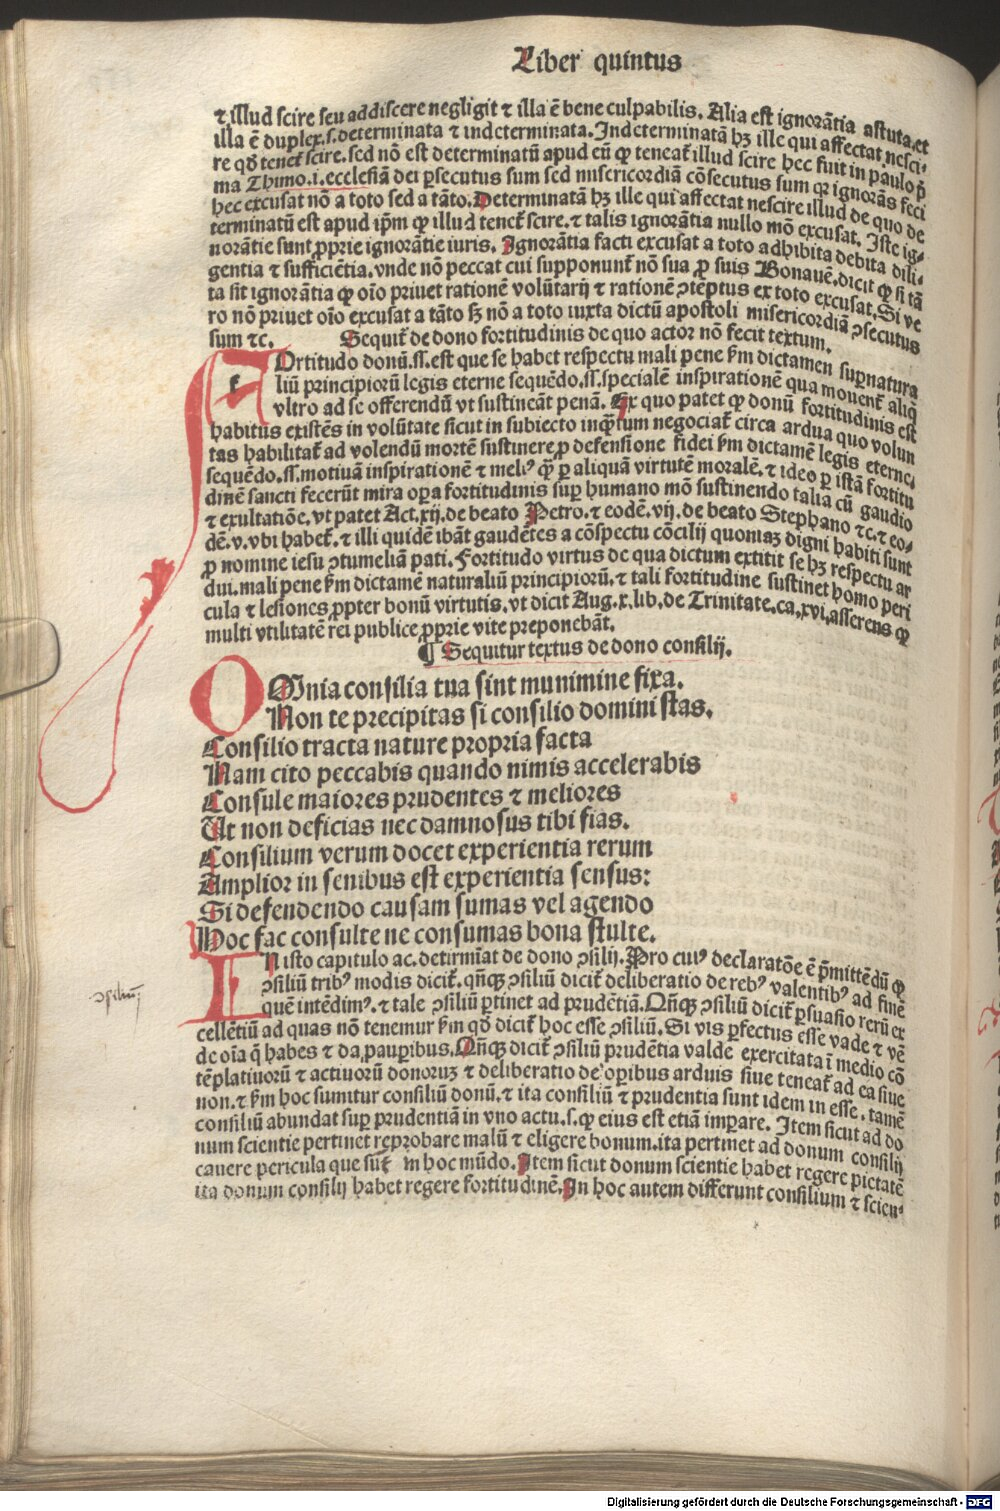 Liber quintus
⁊ illud scire seu addiscere negligit ⁊ illa ē bene culpabilis. Alia est ignorātia astuta. et
illa ē duplex. s. determinata ⁊ indeterminata. Indeterminatā hꝫ ille qui affectat nesci-
re qd̄ tenet̄ scire. sed nō est determinatū apud eū ꝙ teneat̄ illud scire hec fuit in paulo p̄
ma Thimo. i. ecclesiā dei ꝑsecutus sum sed misericordiā cōsecutus sum qꝛ ignorās feci
hec excusat nō a toto sed a tāto. Determinatā hꝫ ille qui affectat nescire illud de quo de
terminatū est apud ip̄m ꝙ illud tenet̄ scire. ⁊ talis ignorātia nullo mō excusat. Iste ig-
norātie sunt ꝓprie ignorātie iuris. Ignorātia facti excusat a toto adhibita debita dili-
gentia ⁊ sufficiētia. vnde nō peccat cui supponunt̄ nō sua ꝓ suis Bonauē. dicit ꝙ si tā
ta sit ignorātia ꝙ oīo priuet rationē volūtarij ⁊ rationē ꝯtēptus ex toto excusat. Si ve
ro nō priuet oīo excusat a tāto sꝫ nō a toto iuxta dictū apostoli misericordiā ꝯsecutus
sum ⁊c. Sequit̄ de dono fortitudinis de quo actor nō fecit textum.
FOrtitudo donū. ss. est que se habet respectu mali pene ẜm dictamen supꝛnatura
liū principiorū legis eterne sequēdo. ss. specialē inspirationē qua mouent̄ aliq̄
vltro ad se offerendū vt sustineāt penā. Ex quo patet ꝙ donū fortitudinis est
habitus existēs in volūtate sicut in subiecto inq̄ꝫtum negociat̄ circa ardua quo volun
tas habilitat̄ ad volendū mortē sustinere ꝓ defensione fidei ẜm dictamē legis eterne.
sequēdo. ss. motiuā inspirationē ⁊ meliꝰ ꝙ̄ ꝑ aliquā virtutē moralē. ⁊ ideo ꝑ istā fortitu
dinē sancti fecerūt mira oꝑa fortitudinis suꝑ humano mō sustinendo talia cū gaudio
⁊ exultatiōe. vt patet Act. xij. de beato Petro. ⁊ eodē. vij. de beato Stephano ⁊c. ⁊ eo-
dē. v. vbi habet̄. ⁊ illi quidē ibāt gaudētes a cōspectu cōcilij quoniaꝫ digni habiti sunt
ꝓ nomine iesu ꝯtumeliā pati. Fortitudo virtus de qua dictum extitit se hꝫ respectu ar
dui. mali pene ẜm dictamē naturaliū principiorū. ⁊ tali fortitudine sustinet homo peri
cula ⁊ lesiones ꝓpter bonū virtutis. vt dicit Aug. x. lib. de Trinitate. ca. xvi. asserens ꝙ
multi vtilitatē rei publice ꝓprie vite preponebāt.
¶ Sequitur textus de dono consilij.
OMnia consilia tua sint munimine fixa.
Non te precipitas si consilio domini stas.
Consilio tracta nature propria facta
Nam cito peccabis quando nimis accelerabis
Consule maiores prudentes ⁊ meliores
Ut non deficias nec damnosus tibi fias.
Consilium verum docet experientia rerum
Amplior in senibus est experientia sensus:
Si defendendo causam sumas vel agendo
Hoc fac consulte ne consumas bona stulte.
IN isto capitulo ac. detirmīat de dono ꝯsilij. Pro cuiꝰ declaratōe ē p̄mittēdū ꝙ
ꝯsiliū tribꝰ modis dicit̄. qn̄qꝫ ꝯsiliū dicit̄ deliberatio de rebꝰ valentibꝰ ad finē
quē intēdimꝰ. ⁊ tale ꝯsiliū ꝑtinet ad prudētiā. Qn̄qꝫ ꝯsiliū dicit̄ ꝑsuasio rerū ex
cellētiū ad quas nō tenemur ẜm qd̄ dicit̄ hoc esse ꝯsiliū. Si vis ꝑfectus esse vade ⁊ vē
de oīa q̄ habes ⁊ da pauꝑibus. Qn̄qꝫ dicit̄ ꝯsiliū prudētia valde exercitata ī medio cō
tēplatiuorū ⁊ actiuorū donoruꝫ ⁊ deliberatio de oꝑibus arduis siue teneat̄ ad ea siue
non. ⁊ ẜm hoc sumitur consiliū donū. ⁊ ita consiliū ⁊ prudentia sunt idem in esse. tamē
consiliū abundat suꝑ prudentiā in vno actu. s. ꝙ eius est etiā imꝑare. Item sicut ad do
num scientie pertinet reprobare malū ⁊ eligere bonum. ita pertinet ad donum consilij
cauere pericula que sūt in hoc mūdo. Item sicut donum scientie habet regere pietatē
ita donum consilij habet regere fortitudinē. In hoc autem differunt consilium ⁊ scien-
ꝯsiliuꝫ
Digitalisierung gefördert durch die Deutsche Forschungsgemeinschaft - DFG